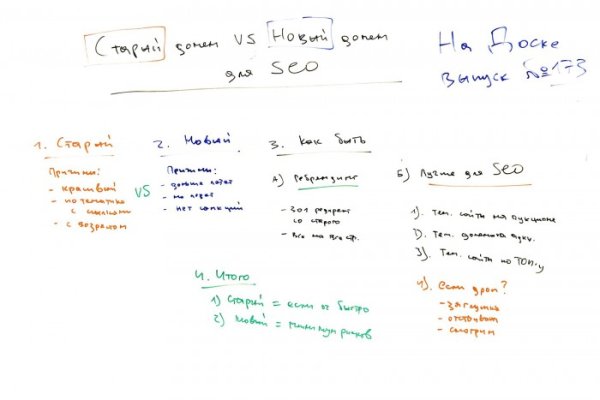 Старый домен VS Новый домен
для SEO
На Доске
выпуск №173
1. Старый
Причины:
- красивый
- по тематике
с ссылками
- с возрастом
VS
2. Новый
Причины:
- дольше
- не
- нет санкций
3. Как быть
А) Ребрендинг
- 301 редирект
со старого
- Все на все стр.
Б) Лучше для SEO
1). Тем. сайты на аукционе
2). Тем. домены аукц.
3). Тем. сайты по ТОП-у
4). если дроп?
- заглушка
- отстоится
- смотрим
4. Итого
1) Старый = если от быстро
2) Новый = минимум рисков